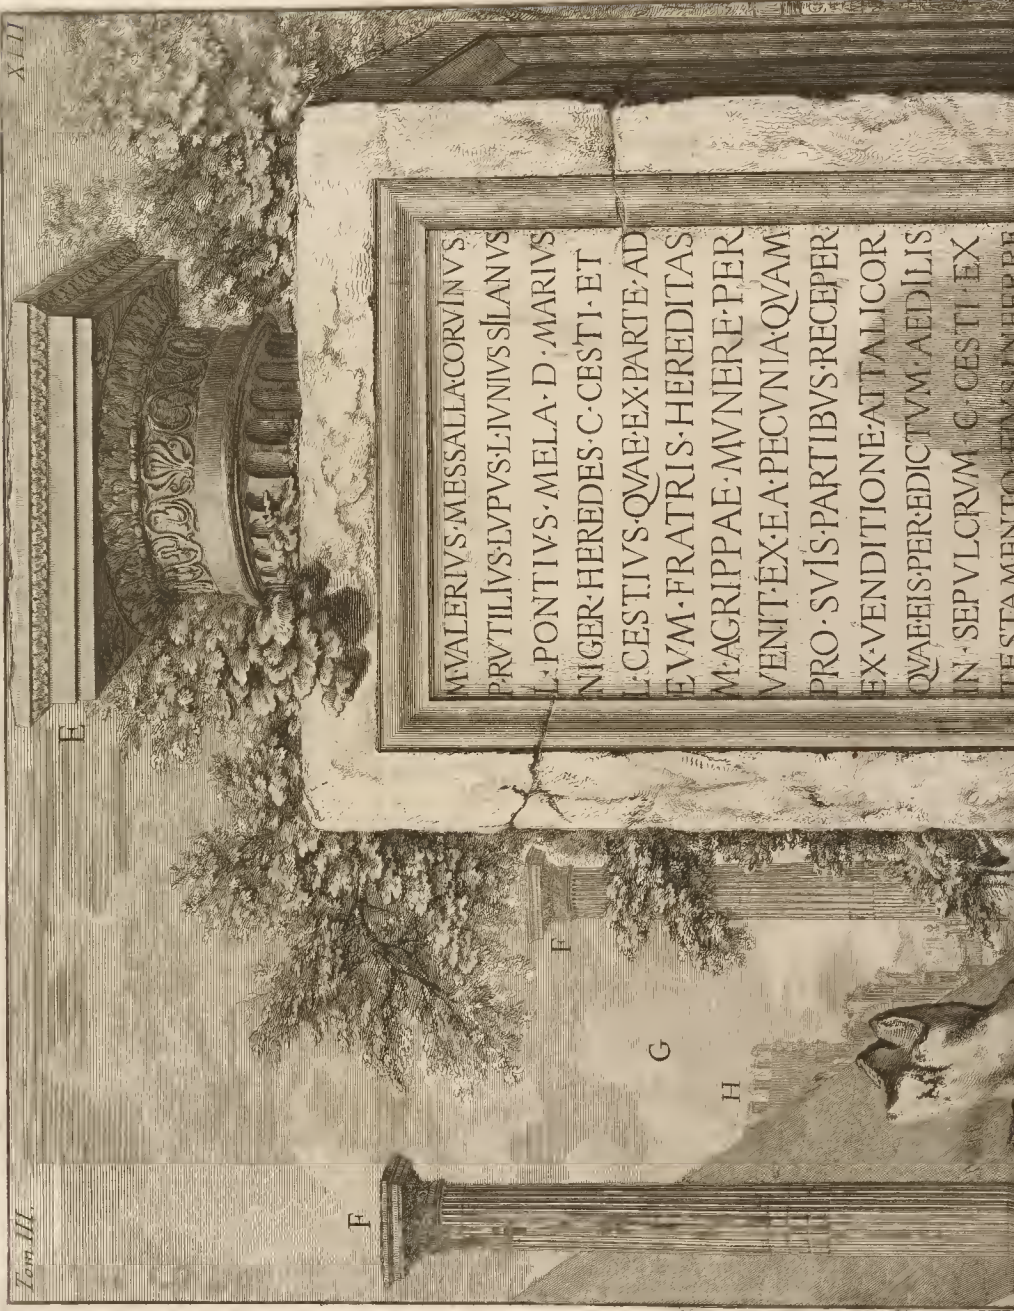 Tom. III.
E
F
F
G
H
M·VALERIVS·MESSALLA·CORVINVS
P·RVTILIVS·LVPVS·L·IVNIVS·SILANVS
L·PONTIVS·MELA·D·MARIVS
NIGER·HEREDES·C·CESTI·ET
L·CESTIVS·QVAE·EX·PARTE·AD
EVM·FRATRIS·HEREDITAS
M·AGRIPPAE·MVNERE·PER
VENIT·EX·EA·PECVNIA·QVAM
PRO·SVIS·PARTIBVS·RECEPER
EX·VENDITIONE·ATTALICOR
QVAE·EIS·PER·EDICTVM·AEDILIS
IN·SEPVLCRVM·C·CESTI·EX